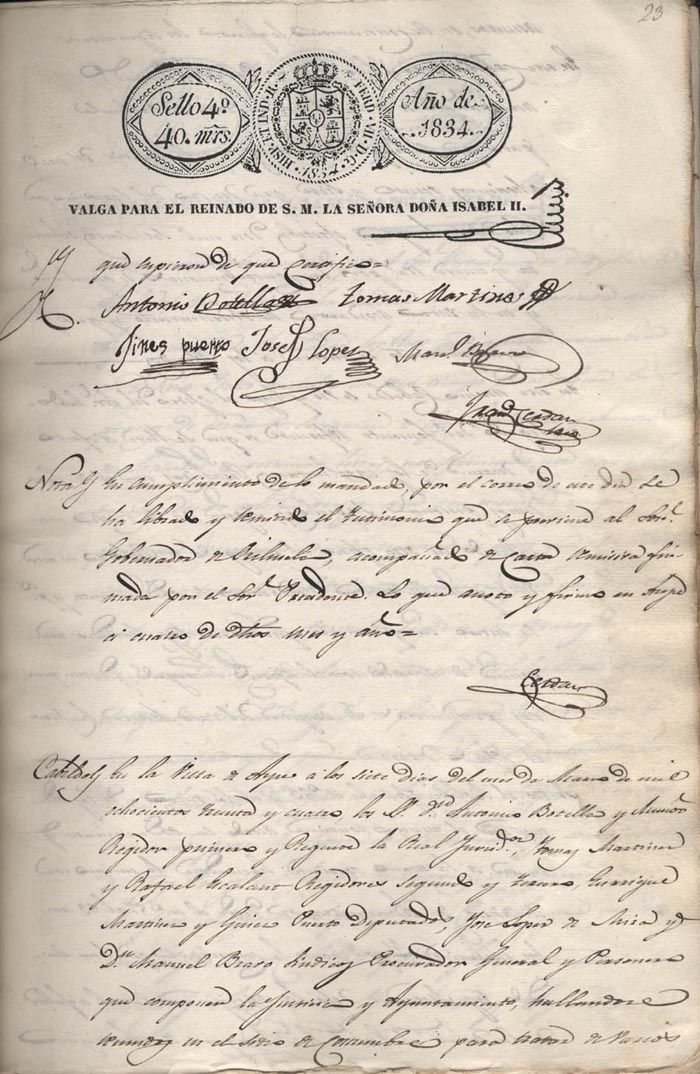 23
Sello 4º
40. mrs.
HISP. ET IND. R. FERD. VII D. G.
1834
Año de
1834.
VALGA PARA EL REINADO DE S. M. LA SEÑORA DOÑA ISABEL II.
que supieron de que Certifico=
Antonio Botella Tomas Martines
Jines puerto Josef Lopez Manl. Bravo
Cerdan
Nota En cumplimiento de lo mandado, por el correo de este dia se
ha librado y remitido el testimonio que se previene al Sor.
Gobernador de Orihuela, acompañado de Carta remisiva fir
mada por el Sor. Presidente. Lo que anoto y firmo en Aspe
à cuatro de dhos mes y año=
Cerdan
Cabildo En la Villa de Aspe à los siete dias del mes de Marzo de mil
ochocientos treinta y cuatro, los Sres. Dn. Antonio Botella y Muñoz
Regidor primero y Regente la Real Jurisdon., Tomas Martinez
y Rafael Escalant Regidores segundo y tercero, Enrrique
Martinez y Gines Puerto Diputados, Jose Lopez de Mira y
Dn. Manuel Bravo Sindicos Procurador General y Personero
que componen la Justicia y Ayuntamiento, hallandose
reunidos en el sitio de Costumbre para tratar de varios